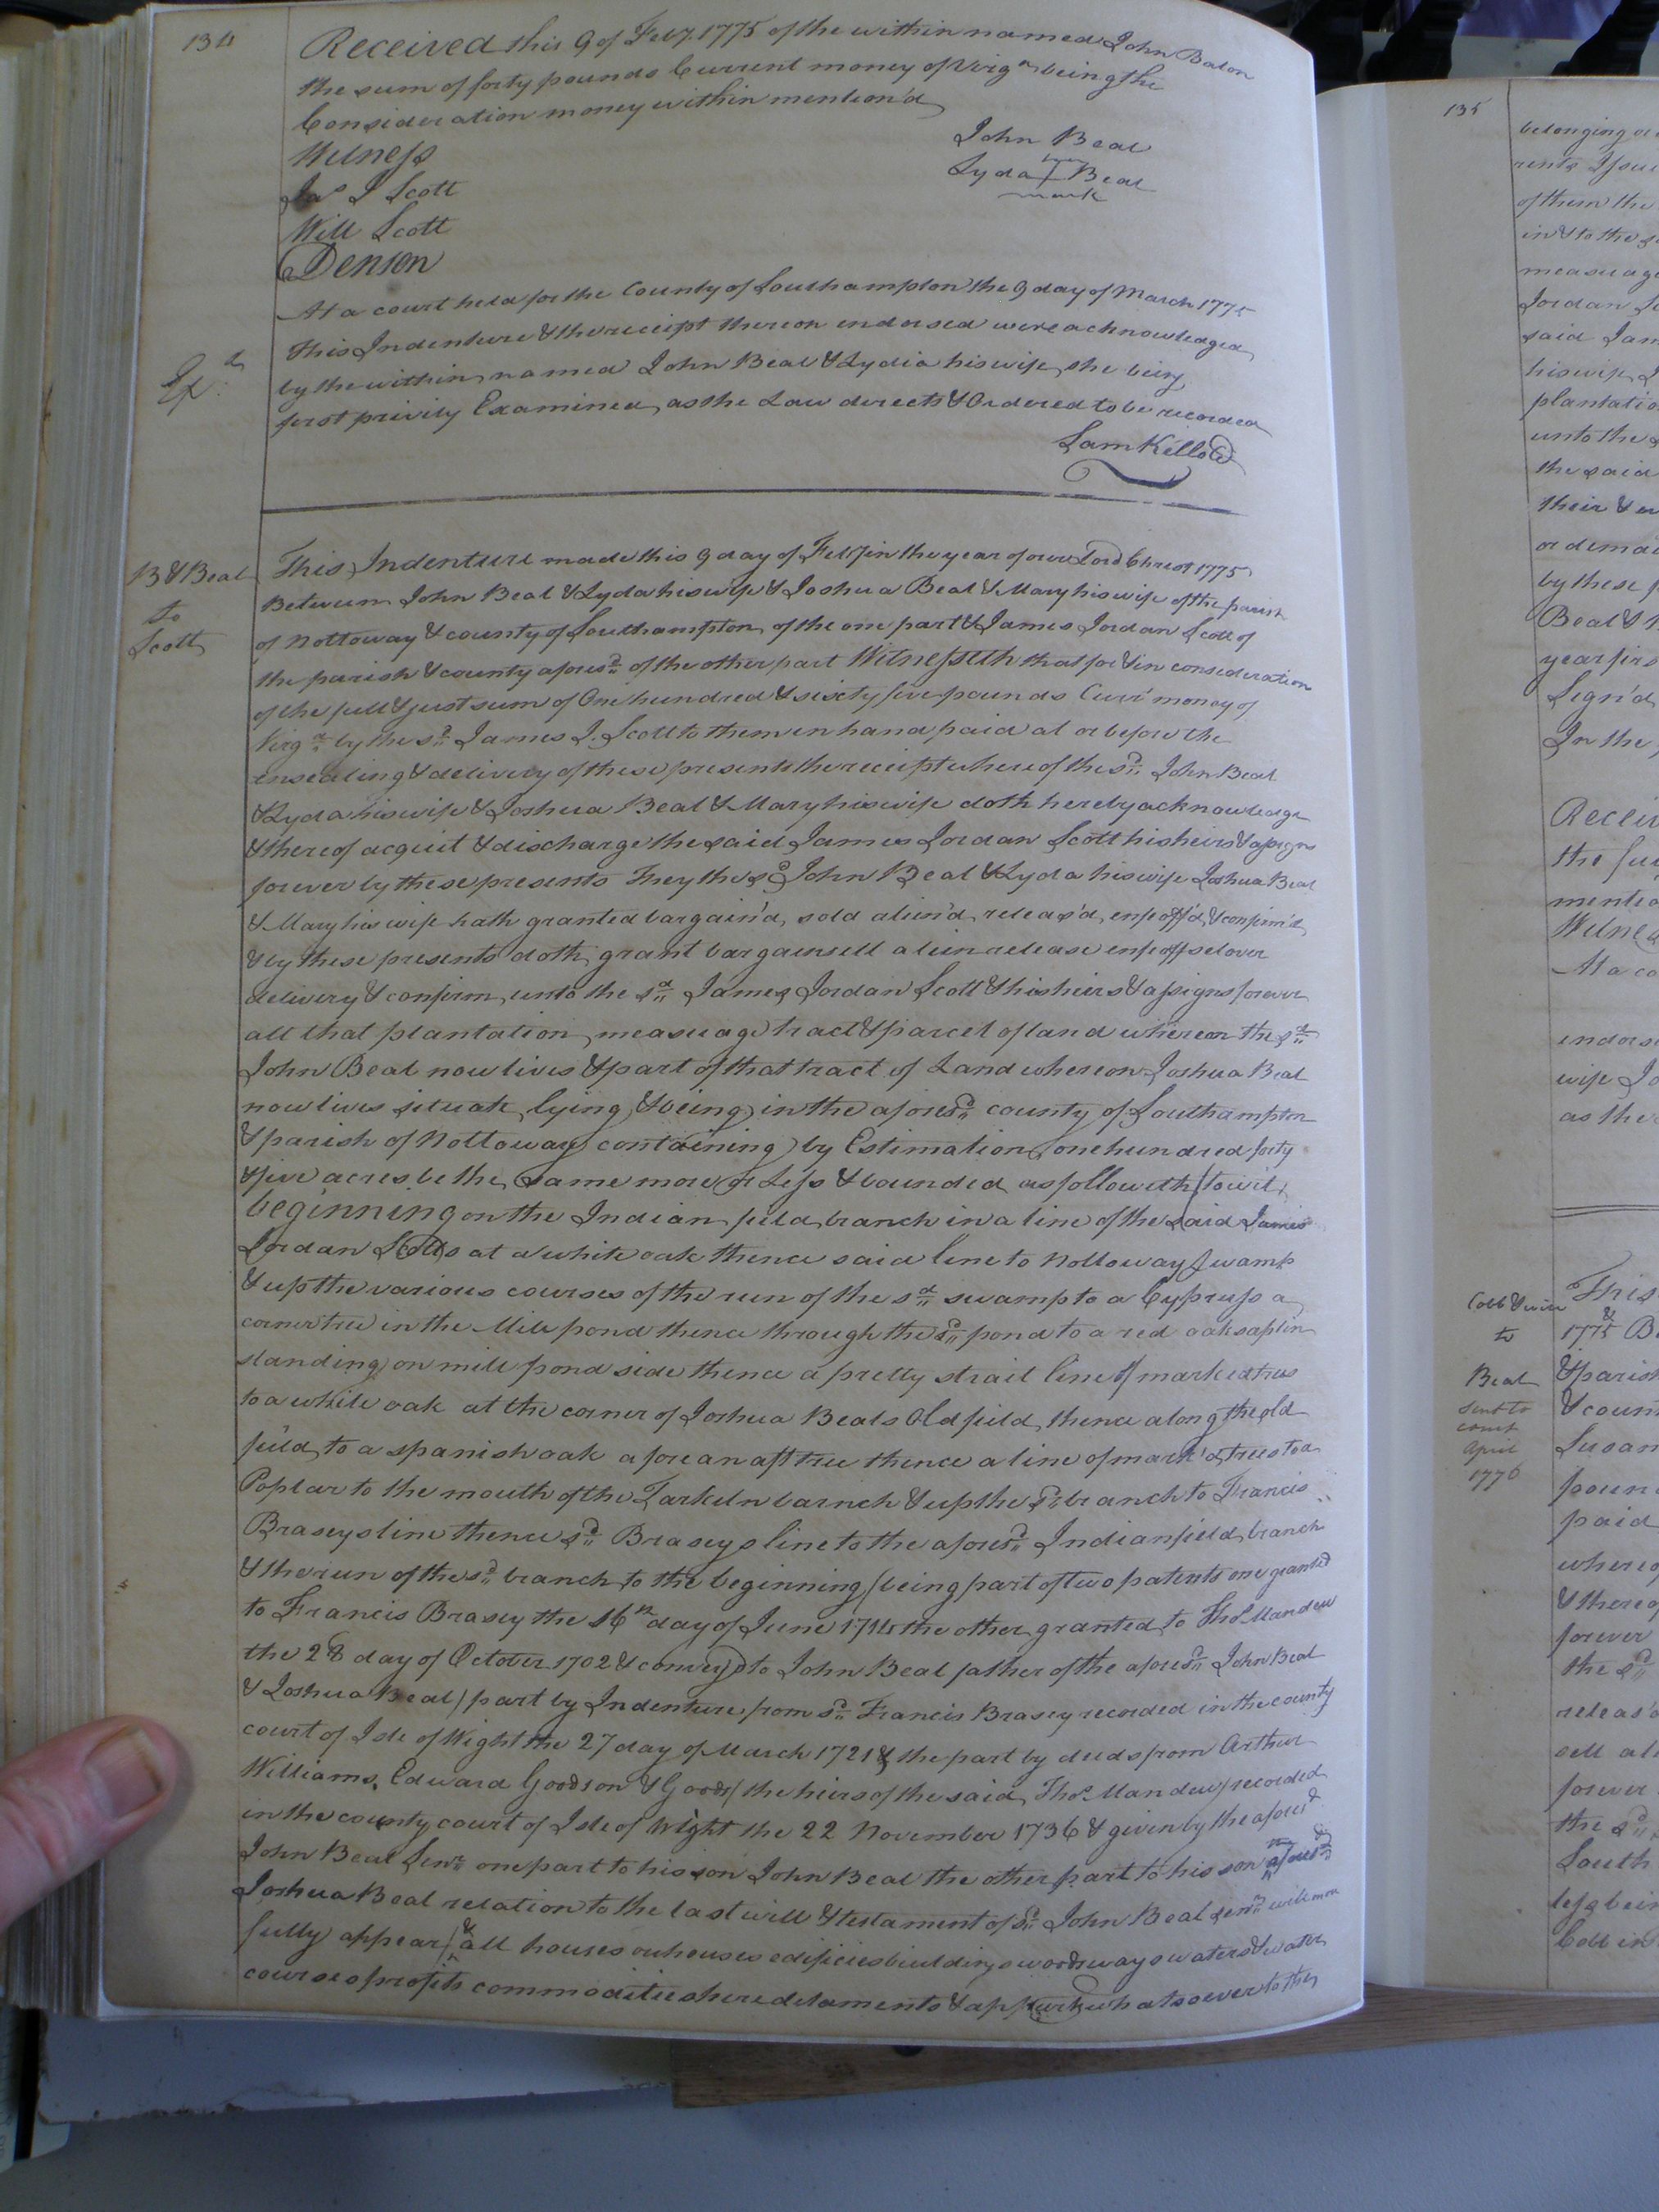 134
Received this 9 of Feby. 1775 of the within named John Baton
the sum of forty pounds Current money of Virga being the
Consideration money within mention'd
Witness
John Beal
Jas J Scott
Lyda + Beal
mark
Will Scott
Denson
At a court held for the County of Southampton the 9 day of March 1775
This Indenture & the receipt thereon endorsed were acknowledged
by the within named John Beal & Lydia his wife she being
first privily Examined as the Law directs & Ordered to be recorded
Ex.d
Sam Kello
B & Beal
to
Scott
This Indenture made this 9 day of Feby in the year of our Lord Christ 1775
Between John Beal & Lyda his wife & Joshua Beal & Mary his wife of the parish
of Nottoway & county of Southampton of the one part & James Jordan Scott of
the parish & county aforesd of the other part Witnesseth that for & in consideration
of the full & just sum of One hundred & sixty five pounds Curr' money of
Virga by the sd James J. Scott to them in hand paid at or before the
ensealing & delivery of these presents the receipt whereof the sd John Beal
& Lyda his wife & Joshua Beal & Mary his wife doth hereby acknowledge
& thereof acquit & discharge the said James Jordan Scott his heirs & assigns
forever by these presents They the sd John Beal & Lyda his wife Joshua Beal
& Mary his wife hath granted bargain'd, sold alien'd, releas'd, enfeoff'd & confirm'd
& by these presents doth grant bargain sell alien release enfeoff set over
delivery & confirm unto the sd James Jordan Scott & his heirs & assigns forever
all that plantation measuage tract & parcel of land whereon the sd
John Beal now lives & part of that tract of Land whereon Joshua Beal
now lives situate lying & being in the aforesd county of Southampton
& parish of Nottoway containing by Estimation one hundred forty
& five acres be the same more or Less & bounded as followeth (to wit)
beginning on the Indian field branch in a line of the said James
Jordan Scotts at a white oak thence said line to Nottoway Swamp
& up the various courses of the run of the sd swamp to a Cypruss a
corner tree in the Mill pond thence through the sd pond to a red oak saplin
standing on mill pond side thence a pretty strait line of marked trees
to a while oak at the corner of Joshua Beals Old field, thence along the old
field, to a spanish oak a fore an aft tree thence a line of mark'd trees to a
Poplar to the mouth of the Tarkeln barnch & up the sd branch to Francis
Braseys line thence sd Braseys line to the aforesd Indian field branch
& the run of the sd branch to the beginning (being part of two patents one granted
to Francis Brasey the 16th day of June 1714 the other granted to Thos Mandew
the 28 day of October 1702 & convey'd to John Beal father of the aforesd John Beal
& Joshua Beal) part by Indenture from sd Francis Brasey recorded in the county
court of Isle of Wight the 27 day of March 1721 & the part by deeds from Arthur
Williams, Edward Goodson & Goods (the heirs of the said Thos Mandew) recorded
in the county court of Isle of Wight the 22 November 1736 & given by the aforesd
John Beal Senr one part to his son John Beal the other part to his son aforesd
Joshua Beal relation to the last will & testament of sd John Beal senr will more
fully appear) & all houses outhouses edificies buildings woods ways waters & water
courses profits commodities hereditaments & appurts whatsoever to the
135
belonging or
rents
of them the
in & to the
measuage
Jordan
said Jam
his wife
plantatio
unto the
the said
their
or deman
by these
Beal &
year firs
Sign'd
In the
Receiv
the
mentio
Witnes
At a co
endors
wife Jo
as the
Cobb & wife
to
Beal
sent to
court
April
1776
This
1775 B
& parish
& coun
Susan
poun
paid
where
& thereof
forever
the sd
releas'd
sell al
forever
the sd
South
less bein
Cobb in